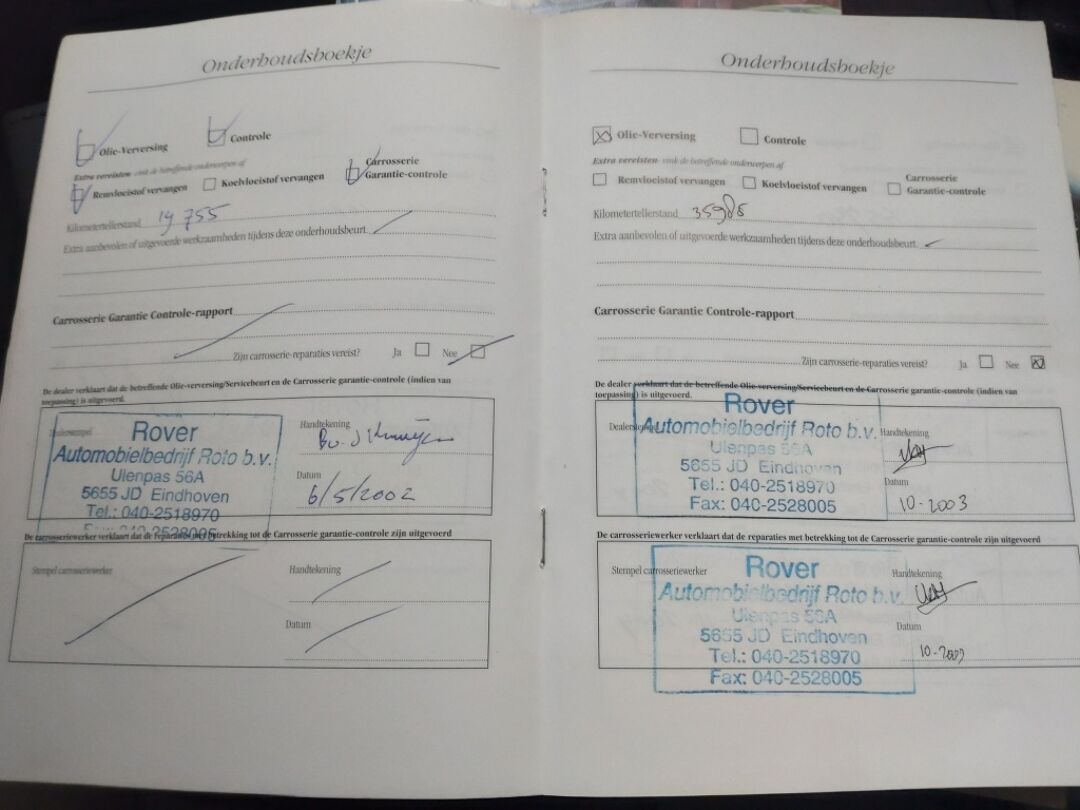 Onderhoudsboekje
Olie-Verversing
Controle
Extra vereisten- vink de betreffende onderwerpen af
Remvloeistof vervangen
Koelvloeistof vervangen
Carrosserie
Garantie-controle
Kilometertellerstand 19 755
Extra aanbevolen of uitgevoerde werkzaamheden tijdens deze onderhoudsbeurt
Carrosserie Garantie Controle-rapport
Zijn carrosserie-reparaties vereist? Ja Nee
De dealer verklaart dat de betreffende Olie-verversing/Servicebeurt en de Carrosserie garantie-controle (indien van
toepassing) is uitgevoerd.
Dealerstempel
Rover
Automobielbedrijf Roto b.v.
Ulenpas 56A
5655 JD Eindhoven
Tel.: 040-2518970
Fax: 040-2528005
Handtekening
Datum
6/5/2002
De carrosseriewerker verklaart dat de reparaties met betrekking tot de Carrosserie garantie-controle zijn uitgevoerd
Stempel carrosseriewerker
Handtekening
Datum
Onderhoudsboekje
Olie-Verversing
Controle
Extra vereisten- vink de betreffende onderwerpen af
Remvloeistof vervangen
Koelvloeistof vervangen
Carrosserie
Garantie-controle
Kilometertellerstand 35985
Extra aanbevolen of uitgevoerde werkzaamheden tijdens deze onderhoudsbeurt
Carrosserie Garantie Controle-rapport
Zijn carrosserie-reparaties vereist? Ja Nee
De dealer verklaart dat de betreffende Olie-verversing/Servicebeurt en de Carrosserie garantie-controle (indien van
toepassing) is uitgevoerd.
Dealerstempel
Rover
Automobielbedrijf Roto b.v.
Ulenpas 56A
5655 JD Eindhoven
Tel.: 040-2518970
Fax: 040-2528005
Handtekening
Datum
10-2003
De carrosseriewerker verklaart dat de reparaties met betrekking tot de Carrosserie garantie-controle zijn uitgevoerd
Stempel carrosseriewerker
Rover
Automobielbedrijf Roto b.v.
Ulenpas 56A
5655 JD Eindhoven
Tel.: 040-2518970
Fax: 040-2528005
Handtekening
Datum
10-2003